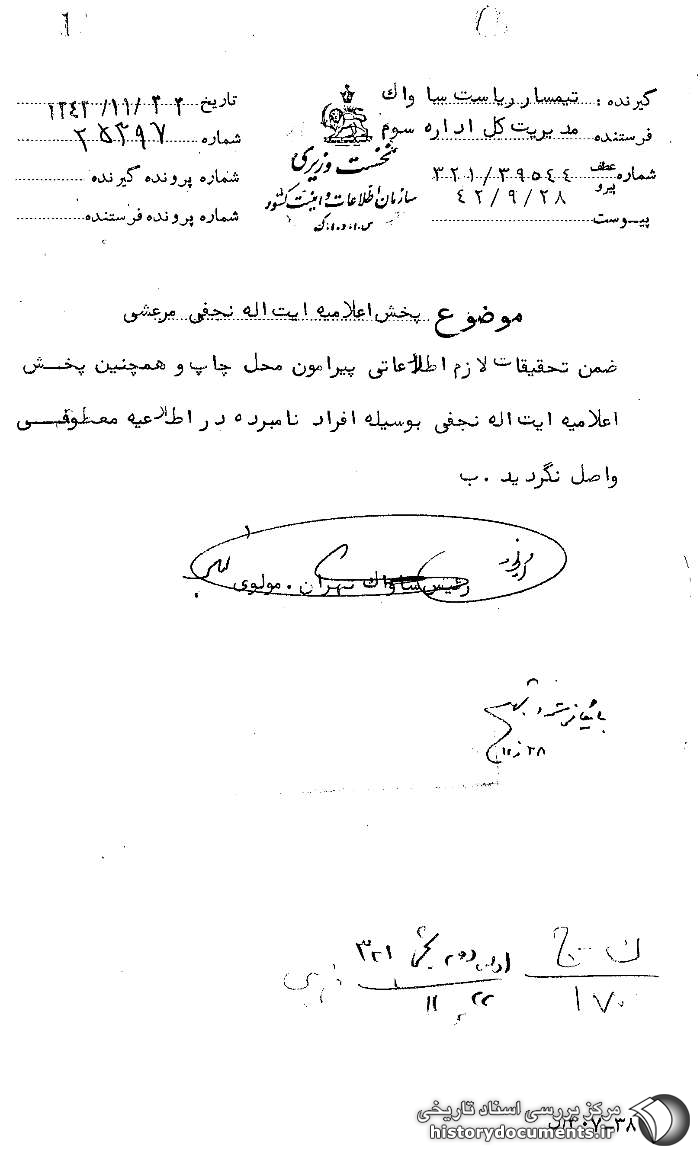 گیرنده : تیمسار ریاست ساواک
فرستنده مدیریت کل اداره سوم
شماره عطف پیرو ۳۲۱/۳۹۵۴۴
۴۲/۹/۲۸
پیوست
نخست وزیری
سازمان اطلاعات و امنیت کشور
س.ا.و.ا.ک
تاریخ ۱۳۴۲/۱۱/۲۲
شماره ۲۵۳۹۷
شماره پرونده گیرنده
شماره پرونده فرستنده
موضوع پخش اعلامیه ایت اله نجفی مرعشی
ضمن تحقیقات لازم اطلاعاتی پیرامون محل چاپ و همچنین پخش
اعلامیه ایت اله نجفی بوسیله افراد نامبرده در اطلاعیه معطوفی
واصل نگردید . ب
رئیس ساواک تهران . مولوی
بایگانی شود
ک ج
۱۷۰
بخش ۳۲۱
۲۲ ۱۱
مرکز بررسی اسناد تاریخی
historydocuments.ir